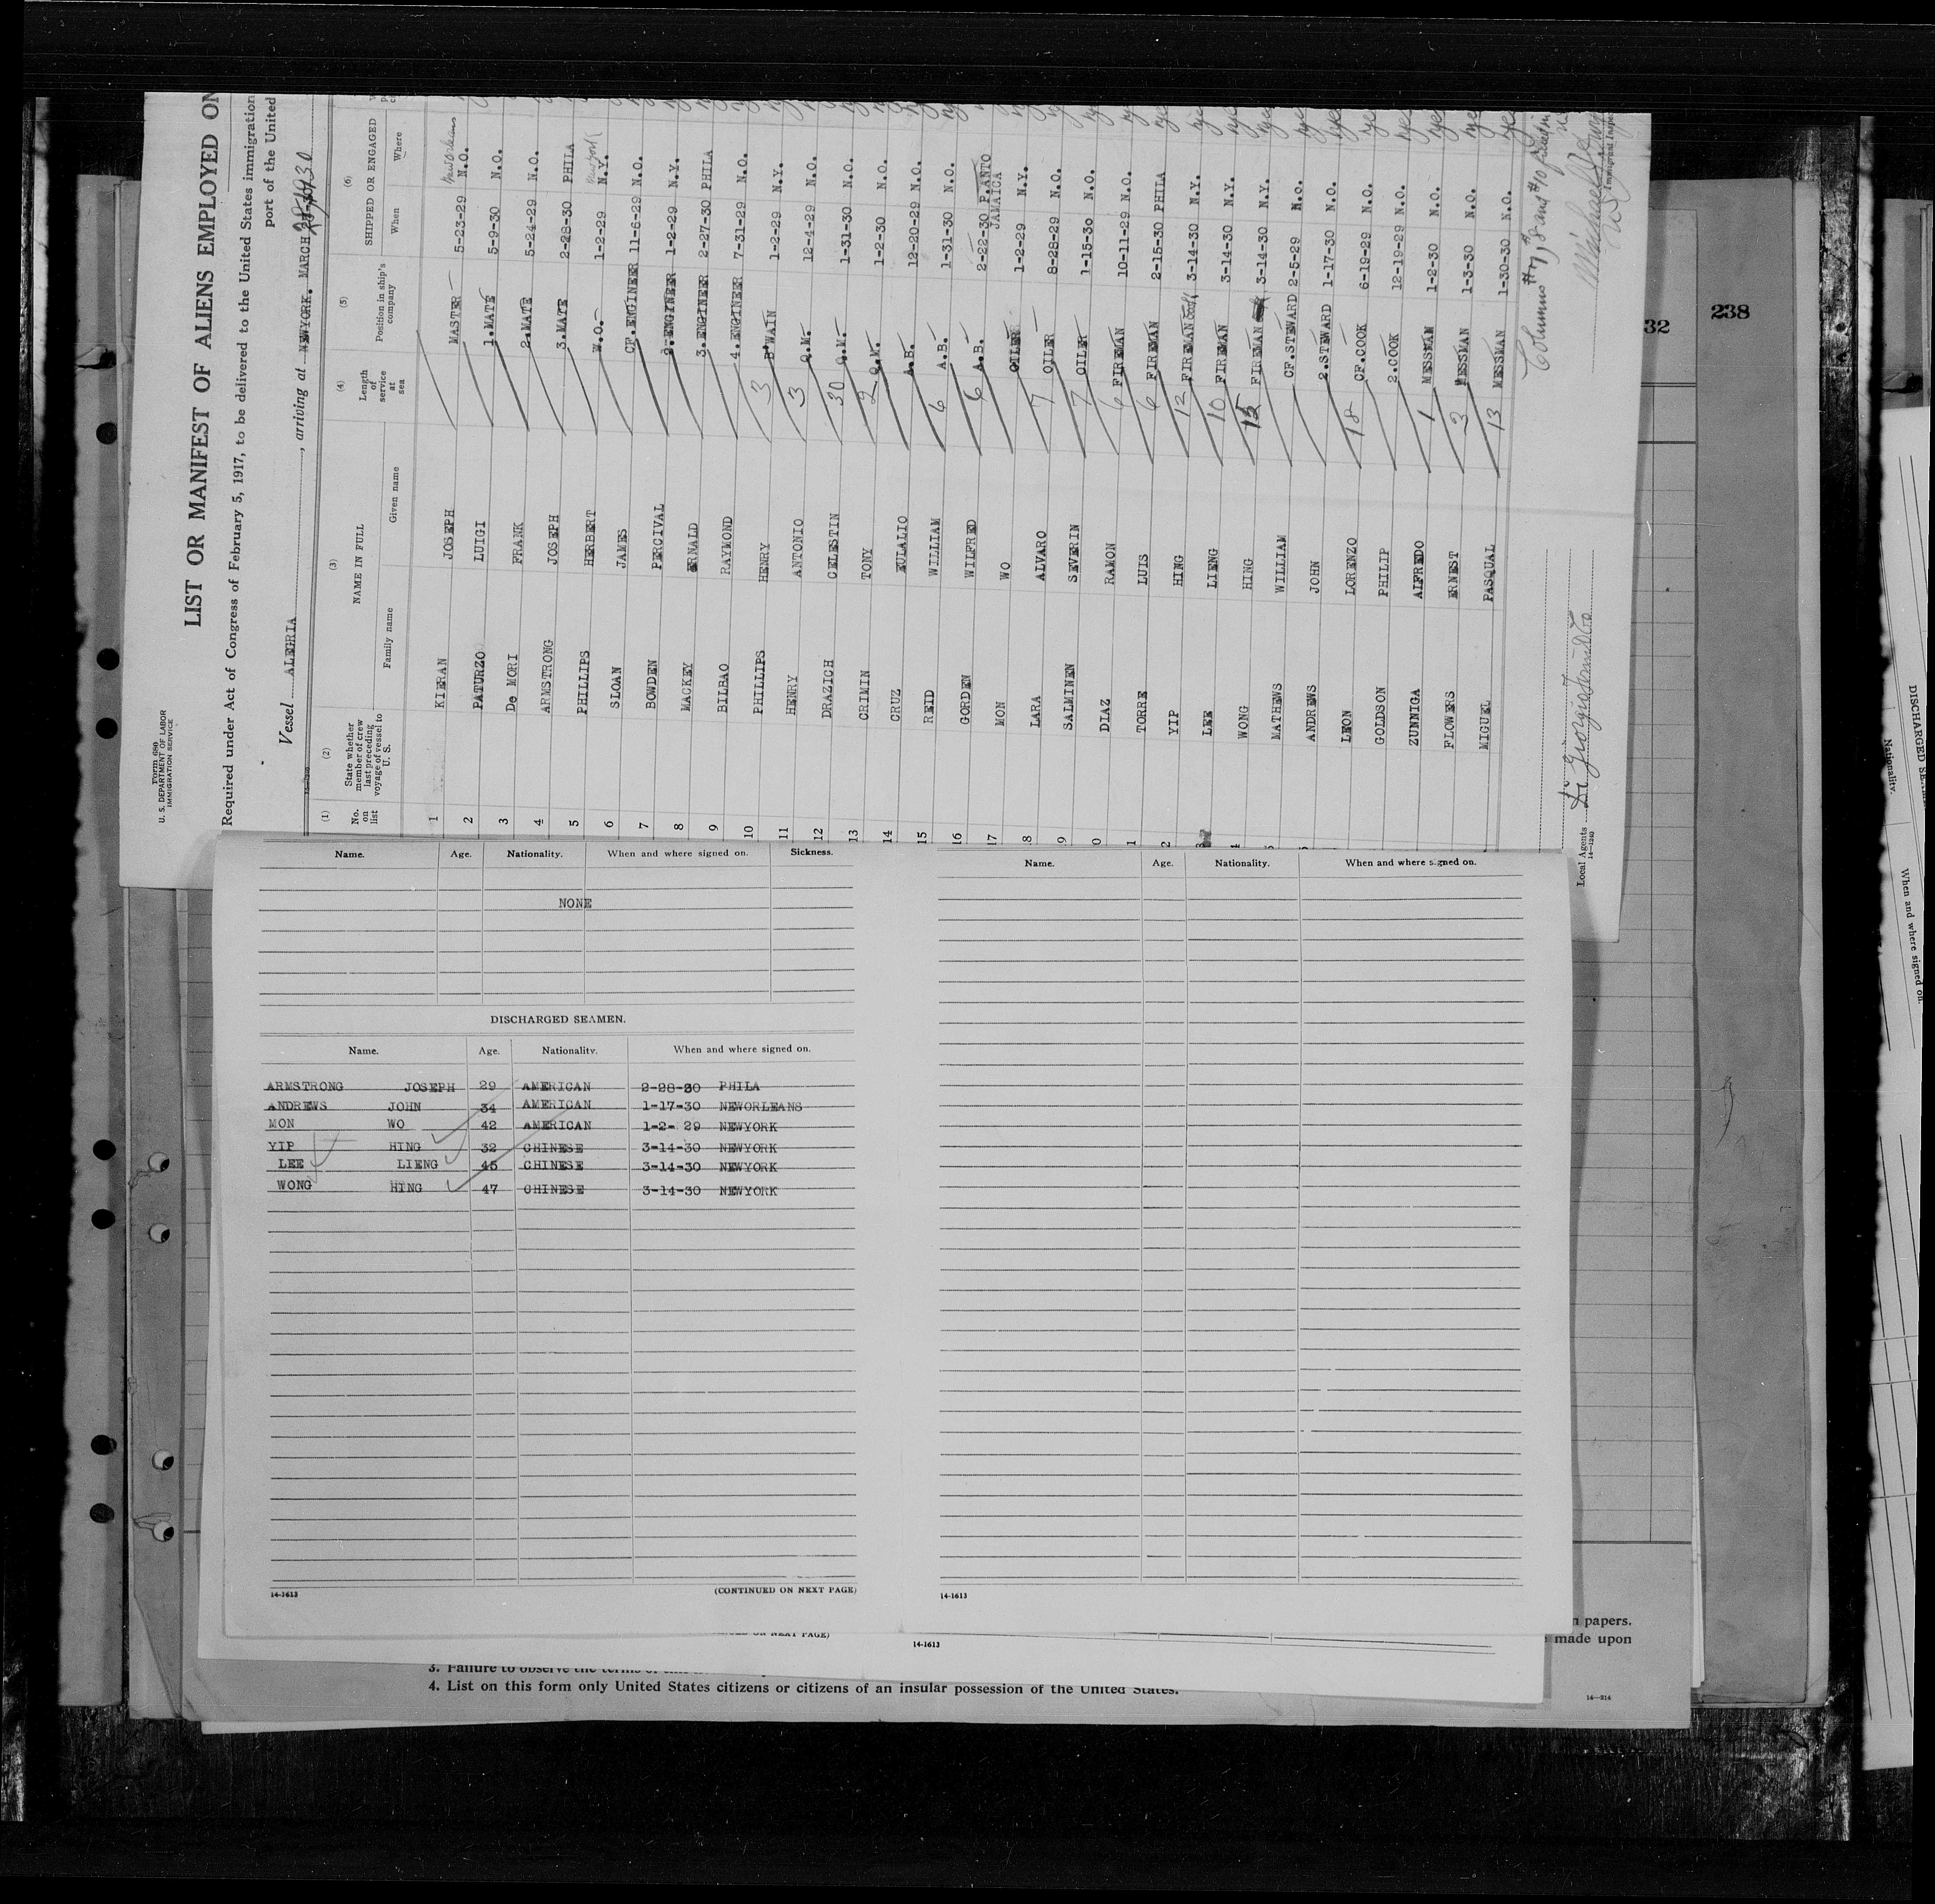 Form 680
U. S. DEPARTMENT OF LABOR
IMMIGRATION SERVICE
LIST OR MANIFEST OF ALIENS EMPLOYED ON
Required under Act of Congress of February 5, 1917, to be delivered to the United States immigration
port of the United
Vessel ALEGRIA , arriving at NEWYORK. MARCH
(1) (2) (3) (4) (5) (6)
No. on list State whether member of crew last preceding voyage of vessel to U. S. NAME IN FULL Length of service at sea Position in ship's company SHIPPED OR ENGAGED
Family name Given name When Where
1 KIERAN JOSEPH MASTER 5-23-29 N.O.
2 PATURZO LUIGI 1.MATE 5-9-30 N.O.
3 De MORI FRANK 2.MATE 5-24-29 N.O.
4 ARMSTRONG JOSEPH 3.MATE 2-28-30 PHILA
5 PHILLIPS HERBERT W.O. 1-2-29 N.Y.
6 SLOAN JAMES CF.ENGINEER 11-6-29 N.O.
7 BOWDEN PERCIVAL 2.ENGINEER 1-2-29 N.Y.
8 MACKEY ERNALD 3.ENGINEER 2-27-30 PHILA
9 BILBAO RAYMOND 4.ENGINEER 7-31-29 N.O.
10 PHILLIPS HENRY 3 B'WAIN 1-2-29 N.Y.
11 HENRY ANTONIO 3 Q.M. 12-4-29 N.O.
12 DRAZICH CELESTIN 30 Q.M. 1-31-30 N.O.
13 CRIMIN TONY 2 Q.M. 1-2-30 N.O.
14 CRUZ EULALIO A.B. 12-20-29 N.O.
15 REID WILLIAM 6 A.B. 1-31-30 N.O.
16 GORDEN WILFRED 6 A.B. 2-22-30 P.ANTO JAMAICA
17 MON WO OILER 1-2-29 N.Y.
8 LARA ALVARO 7 OILER 8-28-29 N.O.
9 SALMINEN SEVERIN 7 OILER 1-15-30 N.O.
0 DIAZ RAMON 6 FIREMAN 10-11-29 N.O.
1 TORRE LUIS 6 FIREMAN 2-15-30 PHILA
2 YIP HING 12 FIREMAN 3-14-30 N.Y.
LEE LIENG 10 FIREMAN 3-14-30 N.Y.
WONG HING FIREMAN 3-14-30 N.Y.
MATHEWS WILLIAM CF.STEWARD 2-5-29 N.O.
ANDREWS JOHN 2.STEWARD 1-17-30 N.O.
LEON LORENZO 18 CF.COOK 6-19-29 N.O.
GOLDSON PHILIP 2.COOK 12-19-29 N.O.
ZUNNIGA ALFREDO 1 MESSMAN 1-2-30 N.O.
FLOWERS ERNEST 3 MESSMAN 1-3-30 N.O.
MIGUEL PASQUAL 13 MESSMAN 1-30-30 N.O.
Local Agents
14—1240
Name. Age. Nationality. When and where signed on. Sickness.
NONE
DISCHARGED SEAMEN.
Name. Age. Nationality. When and where signed on.
ARMSTRONG JOSEPH 29 AMERICAN 2-28-30 PHILA
ANDREWS JOHN 34 AMERICAN 1-17-30 NEWORLEANS
MON WO 42 AMERICAN 1-2- 29 NEWYORK
YIP HING 32 CHINESE 3-14-30 NEWYORK
LEE LIENG 45 CHINESE 3-14-30 NEWYORK
WONG HING 47 CHINESE 3-14-30 NEWYORK
14-1613 (CONTINUED ON NEXT PAGE)
Name. Age. Nationality. When and where signed on.
14-1613
NEXT PAGE)
14-1613
3. Failure to observe the terms of
4. List on this form only United States citizens or citizens of an insular possession of the United States.
papers.
made upon
14—214
32
238
DISCHARGED
Nationality.
When and where signed on.